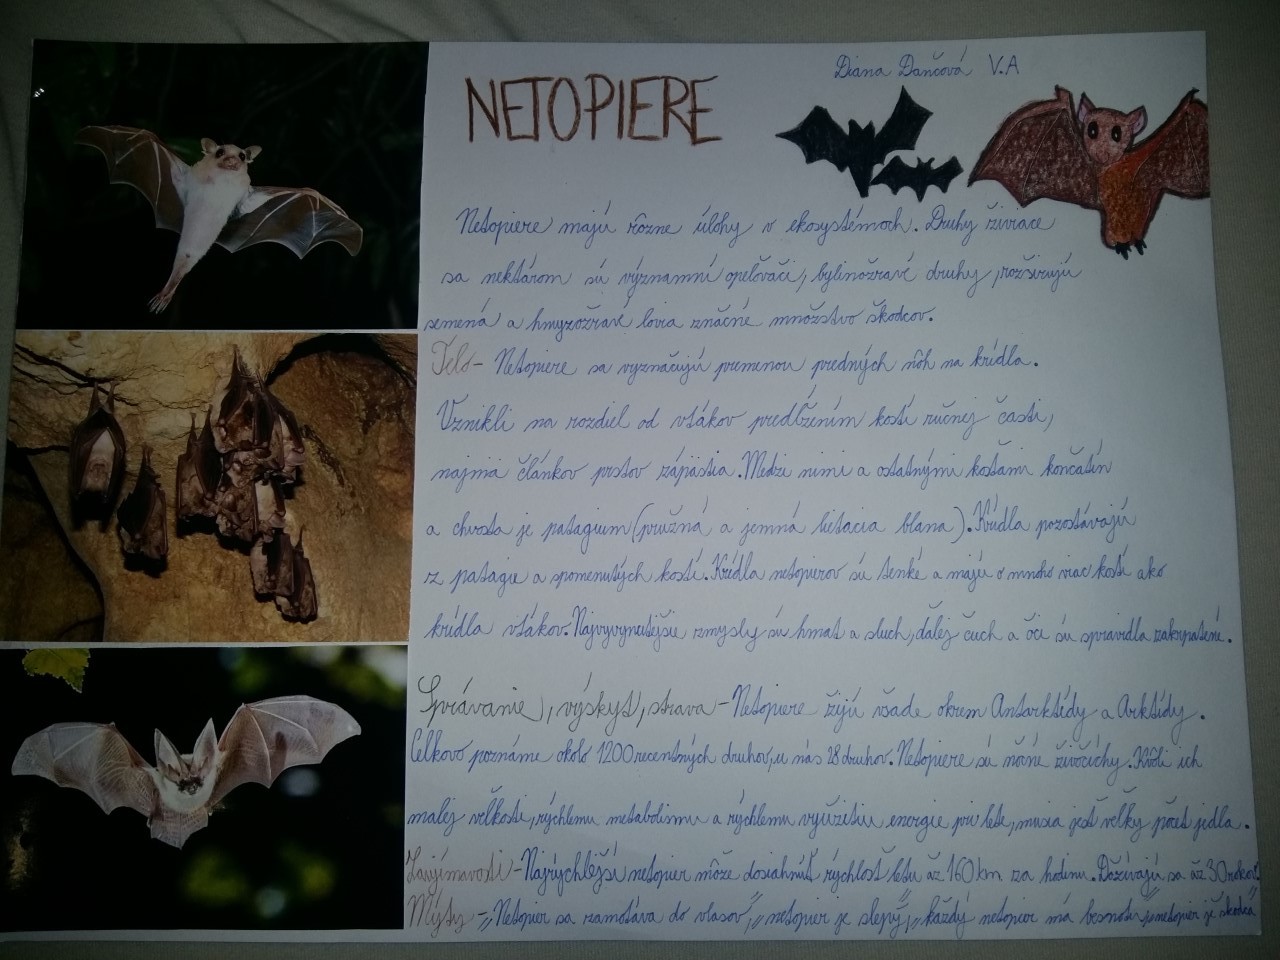 Diana Dančová V.A
NETOPIERE
Netopiere majú rôzne úlohy v ekosystémoch. Druhy živiace
sa nektárom sú významní opeľovači, bylinožravé druhy rozširujú
semená a hmyzožravé lovia značné množstvo škodcov.
Telo- Netopiere sa vyznačujú premenou predných nôh na krídla.
Vznikli na rozdiel od vtákov predĺžením kostí ručnej časti,
najmä článkov prstov zápästia. Medzi nimi a ostatnými kosťami končatín
a chvosta je patagium (pružná a jemná lietacia blana). Krídla pozostávajú
z patagie a spomenutých kostí. Krídla netopierov sú tenké a majú o mnoho viac kostí ako
krídla vtákov. Najvyvynutejšie zmysly sú hmat a sluch, ďalej čuch a oči sú spravidla zakrpatené.
Správanie, výskyt, strava- Netopiere žijú všade okrem Antarktídy a Arktídy.
Celkovo poznáme okolo 1200 recentných druhov, u nás 28 druhov. Netopiere sú nočné živočíchy. Kvôli ich
malej veľkosti, rýchlemu metabolizmu a rýchlemu využitiu energie pri lete, musia jesť veľký počet jedla.
Zaujímavosti- Najrýchlejší netopier môže dosiahnúť rýchlosť letu až 160 km za hodinu. Dožívajú sa až 30 rokov!
Mýty- "Netopier sa zamotáva do vlasov", "netopier je slepý", "každý netopier má besnotu", "netopier je škodca"